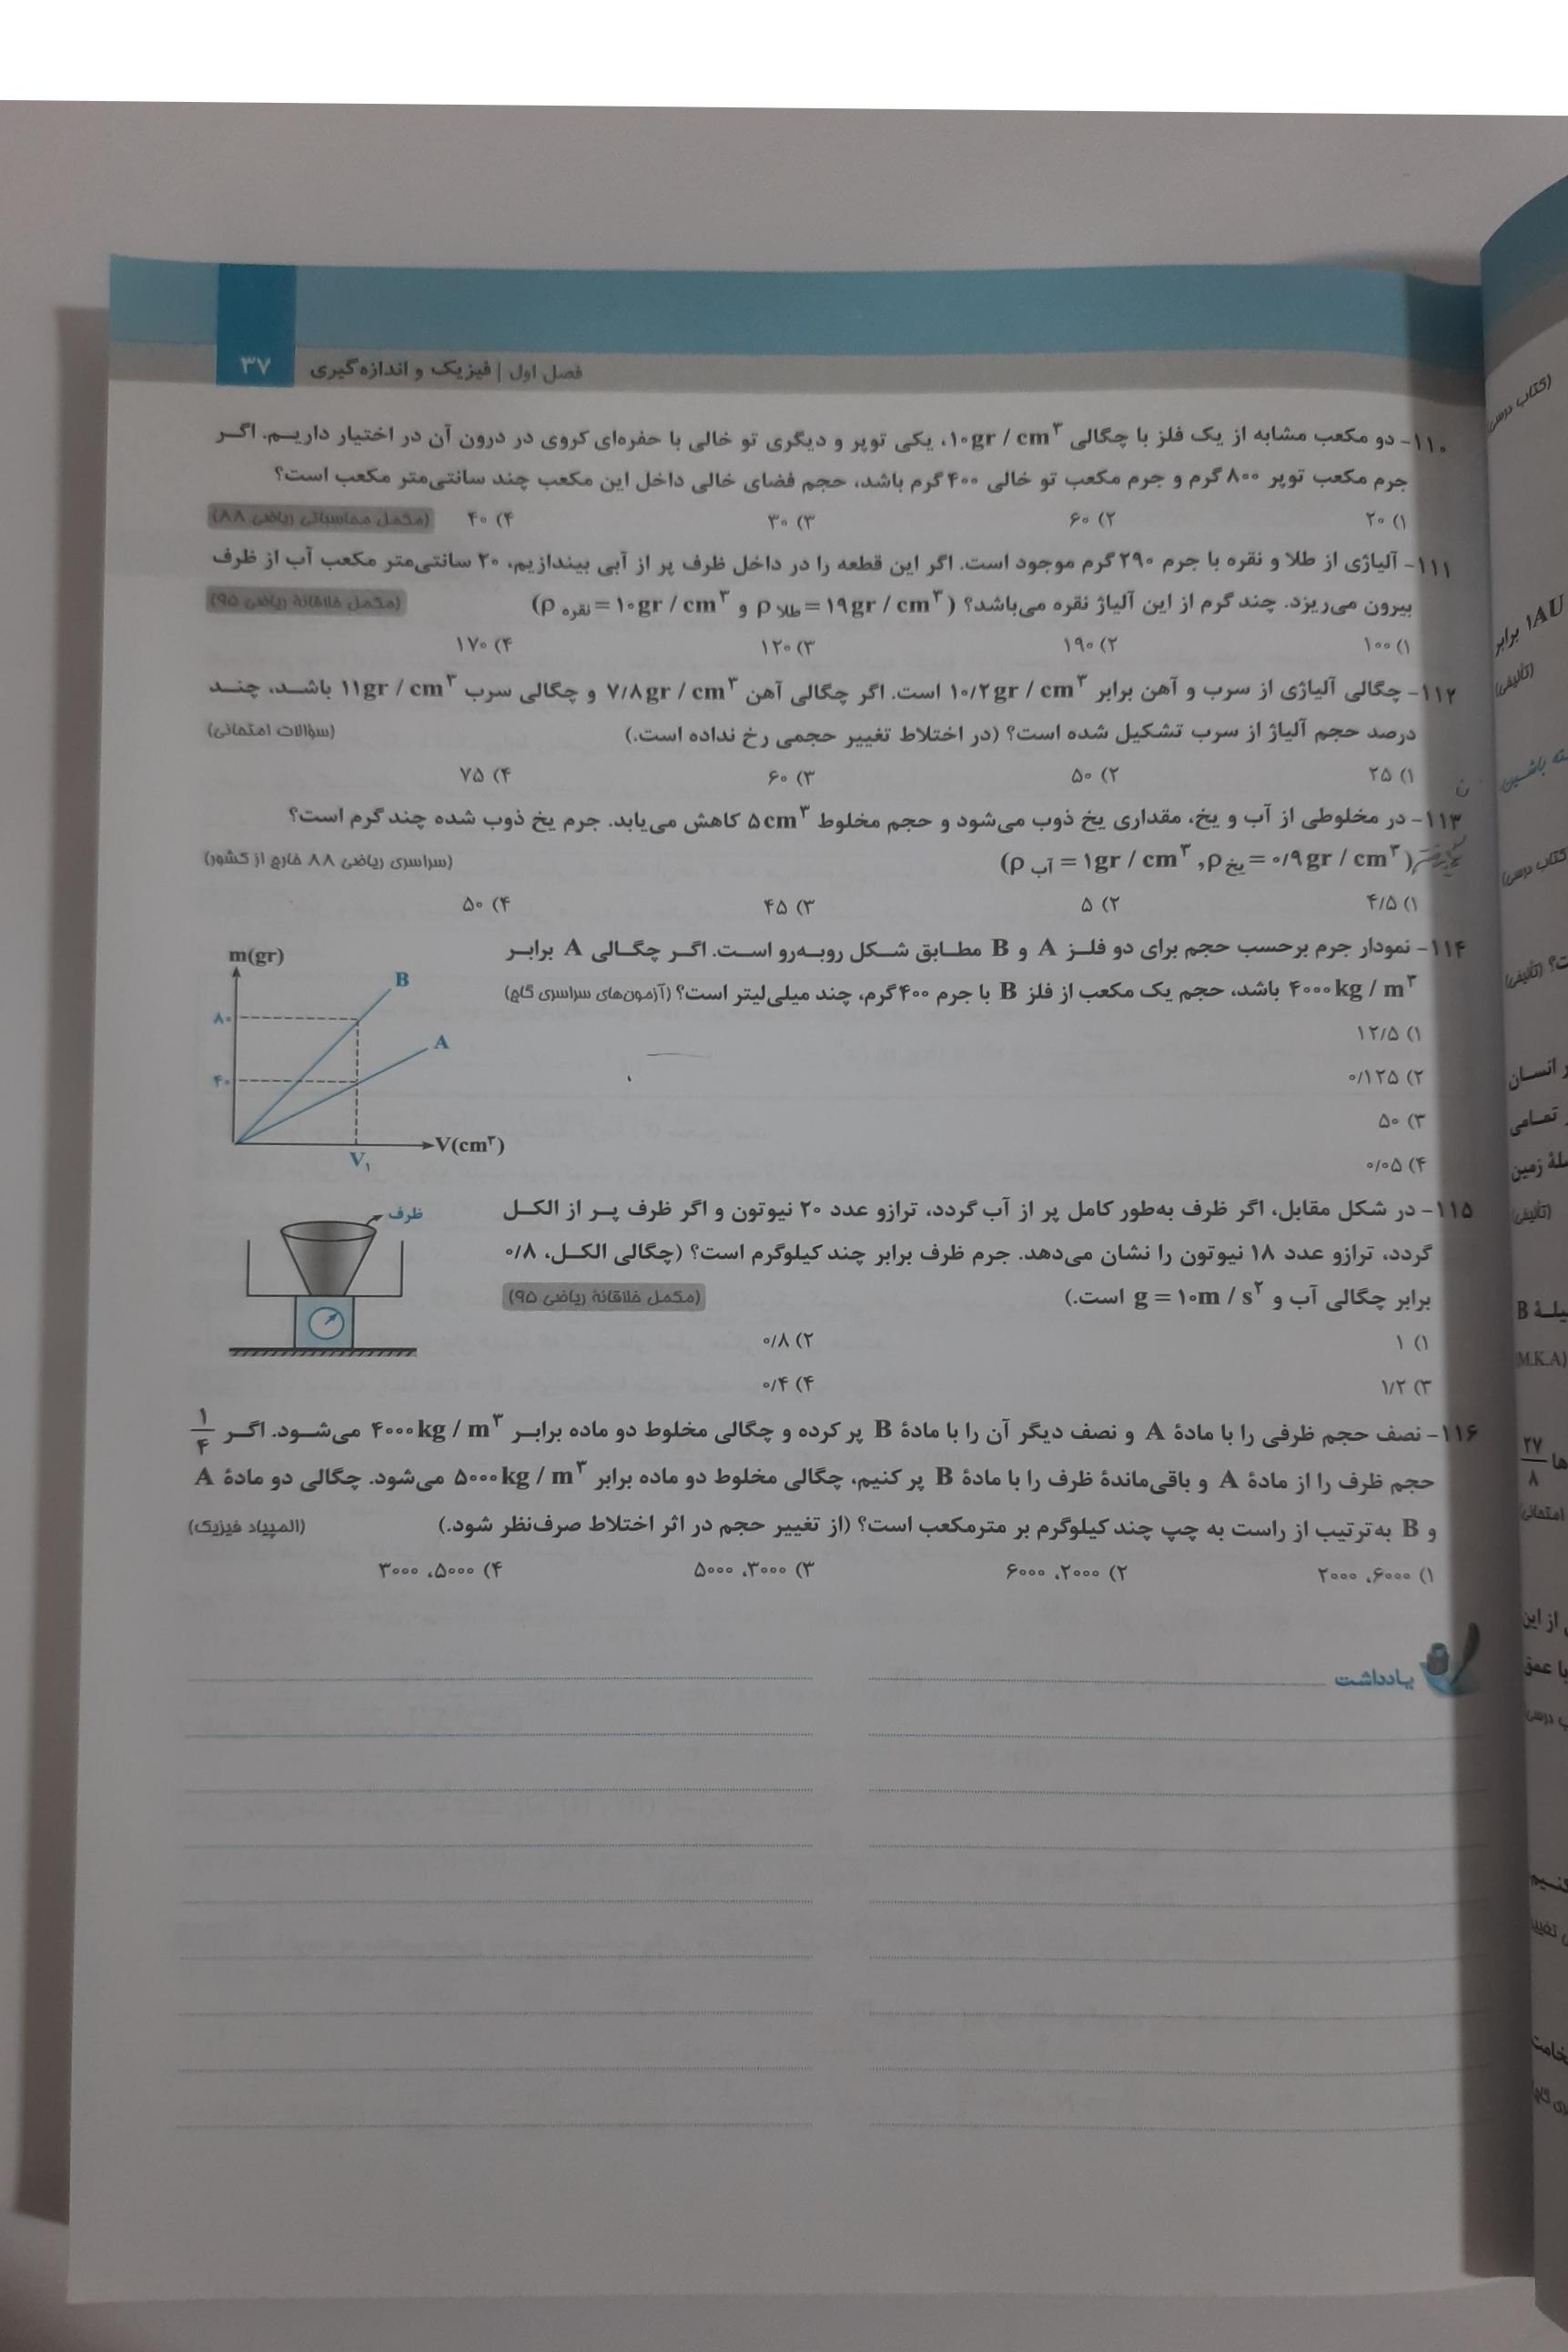 فصل اول | فیزیک و اندازه‌گیری ۳۷
۱۱۰- دو مکعب مشابه از یک فلز با چگالی ۱۰gr / cm³، یکی توپر و دیگری تو خالی با حفره‌ای کروی در درون آن در اختیار داریم. اگر
جرم مکعب توپر ۸۰۰ گرم و جرم مکعب تو خالی ۴۰۰ گرم باشد، حجم فضای خالی داخل این مکعب چند سانتی‌متر مکعب است؟
۱) ۲۰ ۲) ۶۰ ۳) ۳۰ ۴) ۴۰ (مکمل محاسباتی ریاضی ۸۸)
۱۱۱- آلیاژی از طلا و نقره با جرم ۲۹۰ گرم موجود است. اگر این قطعه را در داخل ظرف پر از آبی بیندازیم، ۲۰ سانتی‌متر مکعب آب از ظرف
بیرون می‌ریزد. چند گرم از این آلیاژ نقره می‌باشد؟ (ρ طلا = ۱۹gr / cm³ و ρ نقره = ۱۰gr / cm³) (مکمل خلاقانهٔ ریاضی ۹۵)
۱) ۱۰۰ ۲) ۱۹۰ ۳) ۱۲۰ ۴) ۱۷۰
۱۱۲- چگالی آلیاژی از سرب و آهن برابر ۱۰/۲gr / cm³ است. اگر چگالی آهن ۷/۸gr / cm³ و چگالی سرب ۱۱gr / cm³ باشد، چند
درصد حجم آلیاژ از سرب تشکیل شده است؟ (در اختلاط تغییر حجمی رخ نداده است.) (سؤالات امتحانی)
۱) ۲۵ ۲) ۵۰ ۳) ۶۰ ۴) ۷۵
۱۱۳- در مخلوطی از آب و یخ، مقداری یخ ذوب می‌شود و حجم مخلوط ۵cm³ کاهش می‌یابد. جرم یخ ذوب شده چند گرم است؟
(ρ آب = ۱gr / cm³ ,ρ یخ = ۰/۹gr / cm³) (سراسری ریاضی ۸۸ خارج از کشور)
۱) ۴/۵ ۲) ۵ ۳) ۴۵ ۴) ۵۰
۱۱۴- نمودار جرم برحسب حجم برای دو فلز A و B مطابق شکل روبه‌رو است. اگر چگالی A برابر
۴۰۰۰kg / m³ باشد، حجم یک مکعب از فلز B با جرم ۴۰۰ گرم، چند میلی‌لیتر است؟ (آزمون‌های سراسری گاج)
۱) ۱۲/۵
۲) ۰/۱۲۵
۳) ۵۰
۴) ۰/۰۵
m(gr)
B
۸۰
A
۴۰
V(cm³)
V₁
۱۱۵- در شکل مقابل، اگر ظرف به‌طور کامل پر از آب گردد، ترازو عدد ۲۰ نیوتون و اگر ظرف پر از الکل
گردد، ترازو عدد ۱۸ نیوتون را نشان می‌دهد. جرم ظرف برابر چند کیلوگرم است؟ (چگالی الکل، ۰/۸
برابر چگالی آب و g = ۱۰m / s² است.) (مکمل خلاقانهٔ ریاضی ۹۵)
۱) ۱ ۲) ۰/۸
۳) ۱/۲ ۴) ۰/۴
ظرف
۱۱۶- نصف حجم ظرفی را با مادهٔ A و نصف دیگر آن را با مادهٔ B پر کرده و چگالی مخلوط دو ماده برابر ۴۰۰۰kg / m³ می‌شود. اگر ۱/۴
حجم ظرف را از مادهٔ A و باقی‌ماندهٔ ظرف را با مادهٔ B پر کنیم، چگالی مخلوط دو ماده برابر ۵۰۰۰kg / m³ می‌شود. چگالی دو مادهٔ A
و B به‌ترتیب از راست به چپ چند کیلوگرم بر مترمکعب است؟ (از تغییر حجم در اثر اختلاط صرف‌نظر شود.) (المپیاد فیزیک)
۱) ۶۰۰۰، ۲۰۰۰ ۲) ۲۰۰۰، ۶۰۰۰ ۳) ۳۰۰۰، ۵۰۰۰ ۴) ۵۰۰۰، ۳۰۰۰
یادداشت
(کتاب درسی)
۱AU برابر
(تألیفی)
ته باشین.
(کتاب درسی)
ت؟ (تألیفی)
ر انسان
ر تمامی
صلهٔ زمین
(تألیفی)
یلهٔ B
(M.K.A)
ها ۲۷/۸
امتحانی)
ی از این
با عمق
ب درسی)